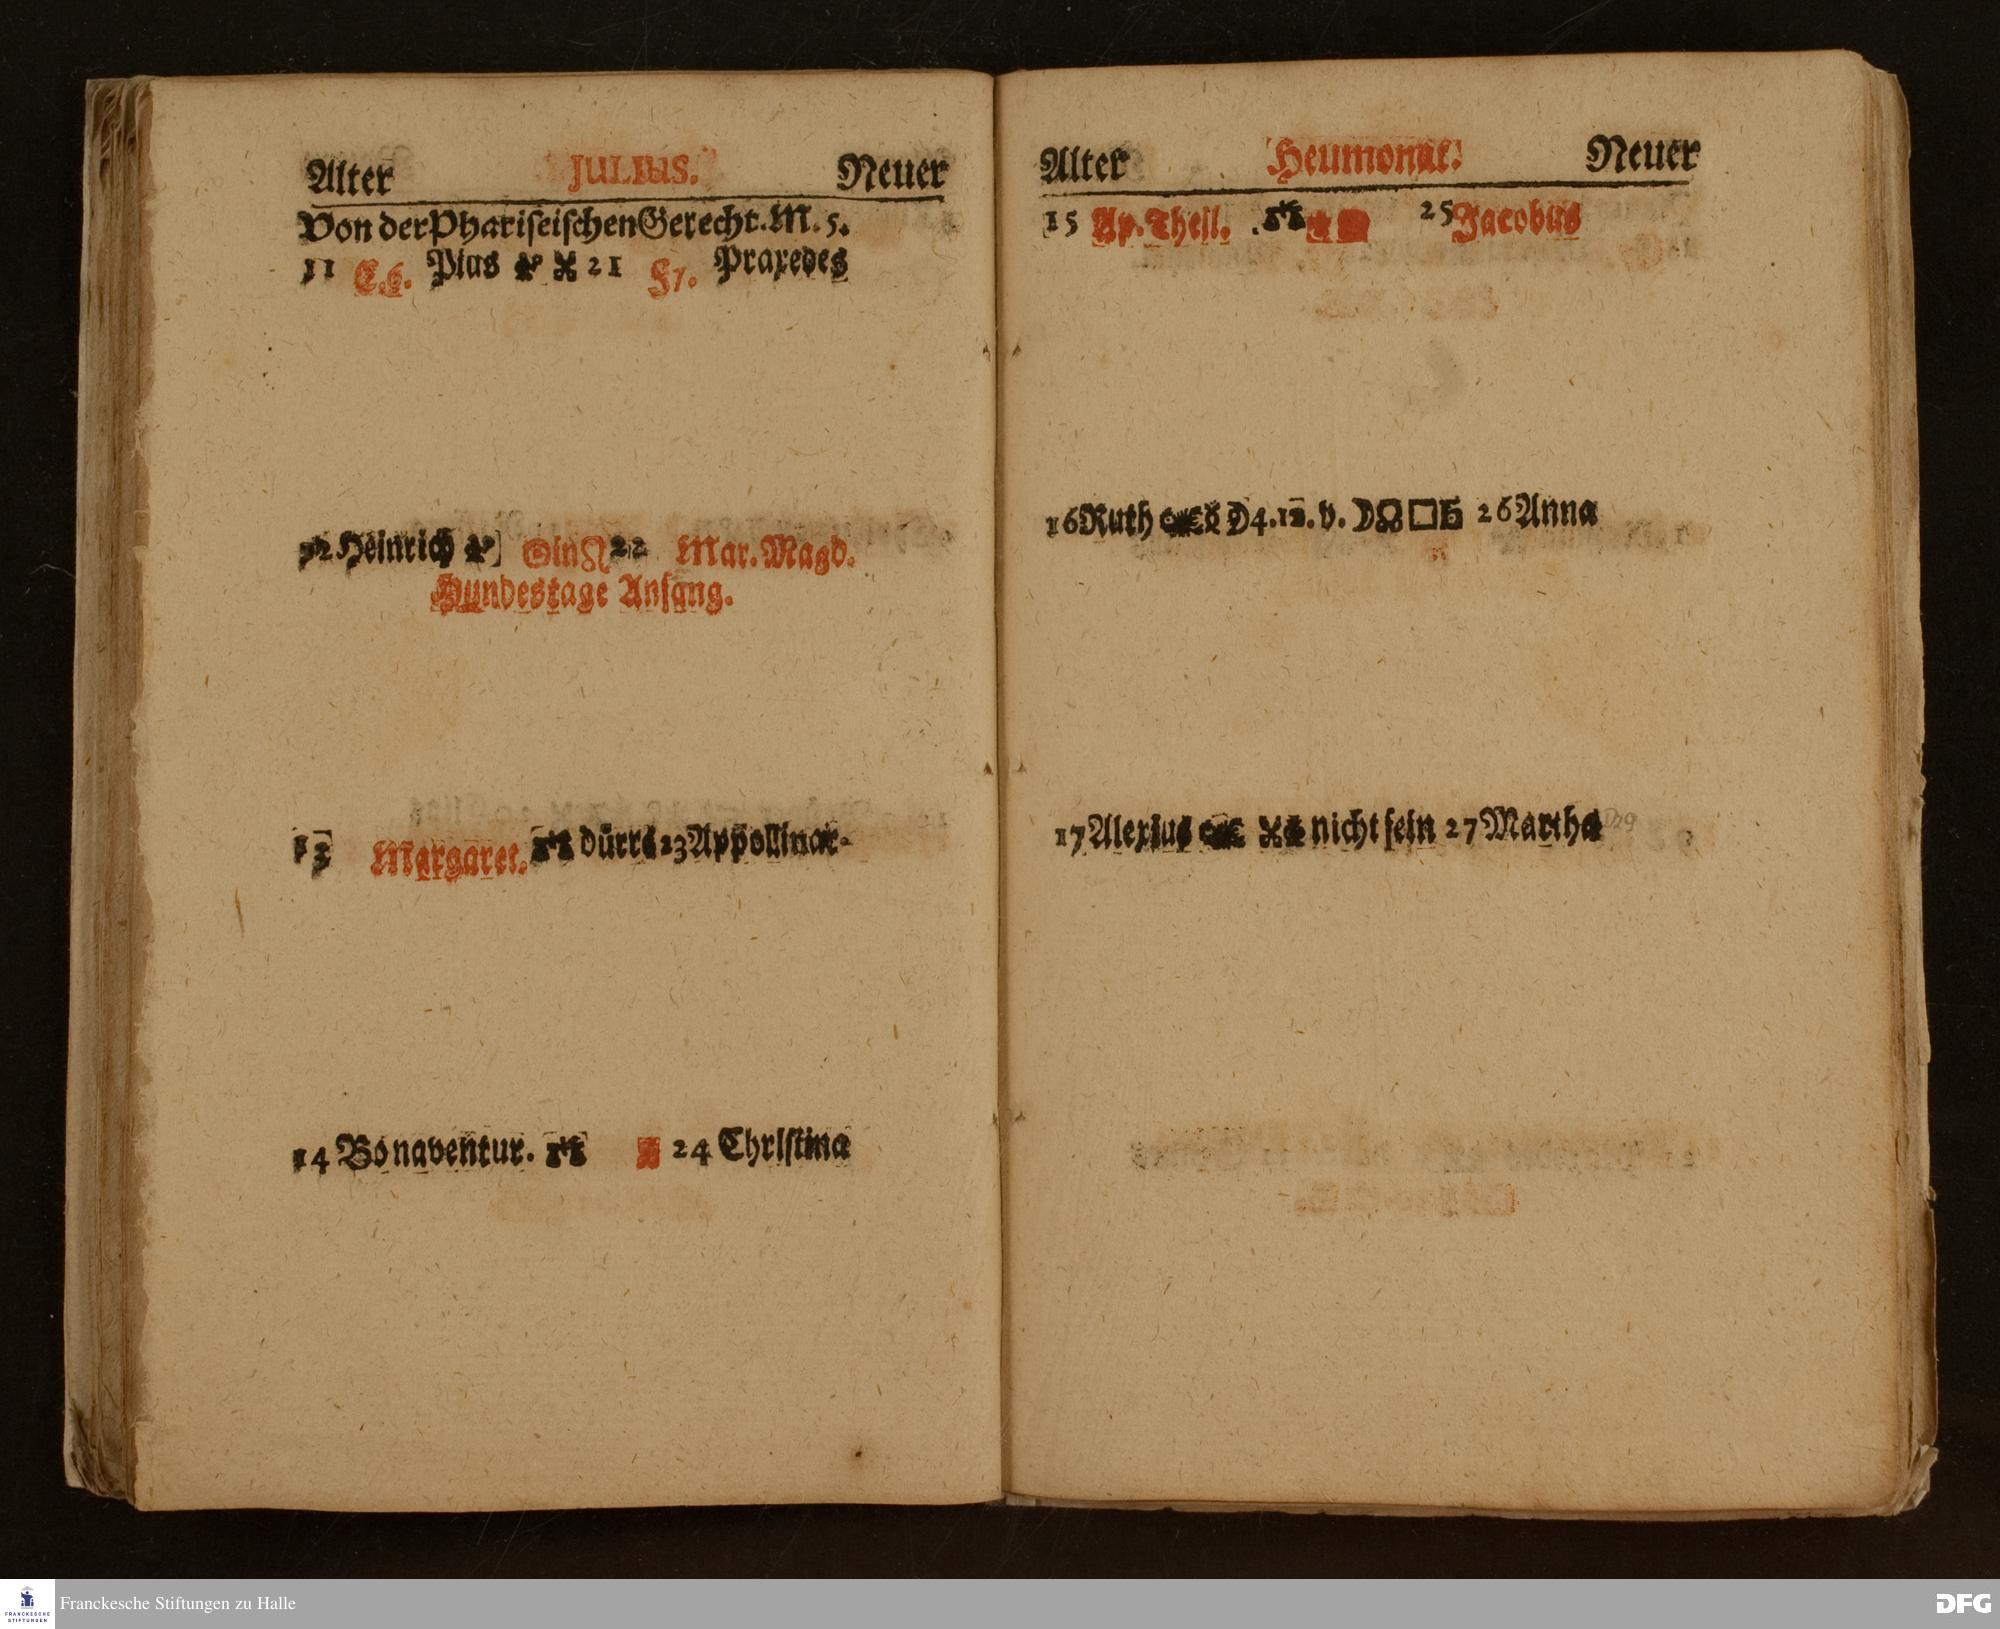 Alter JULIUS. Neuer
Von der Phariseischen Gerecht. M. 5.
11 E. 6. Pius 21 F7. Praxedes
12 Heinrich ☉ in ♌ 22 Mar. Magd.
Hundestage Anfang.
13 Margaret. dürre 23 Appollinar-
14 Bonaventur. 24 Christina
Alter Heumonat. Neuer
15 Ap. Theil. 25 Jacobus
16 Ruth ☽ 4. 12. v. ☽ ☊ □ ♄ 26 Anna
17 Alexius nicht fein 27 Martha
Franckesche Stiftungen zu Halle
FRANCKESCHE
STIFTUNGEN
DFG